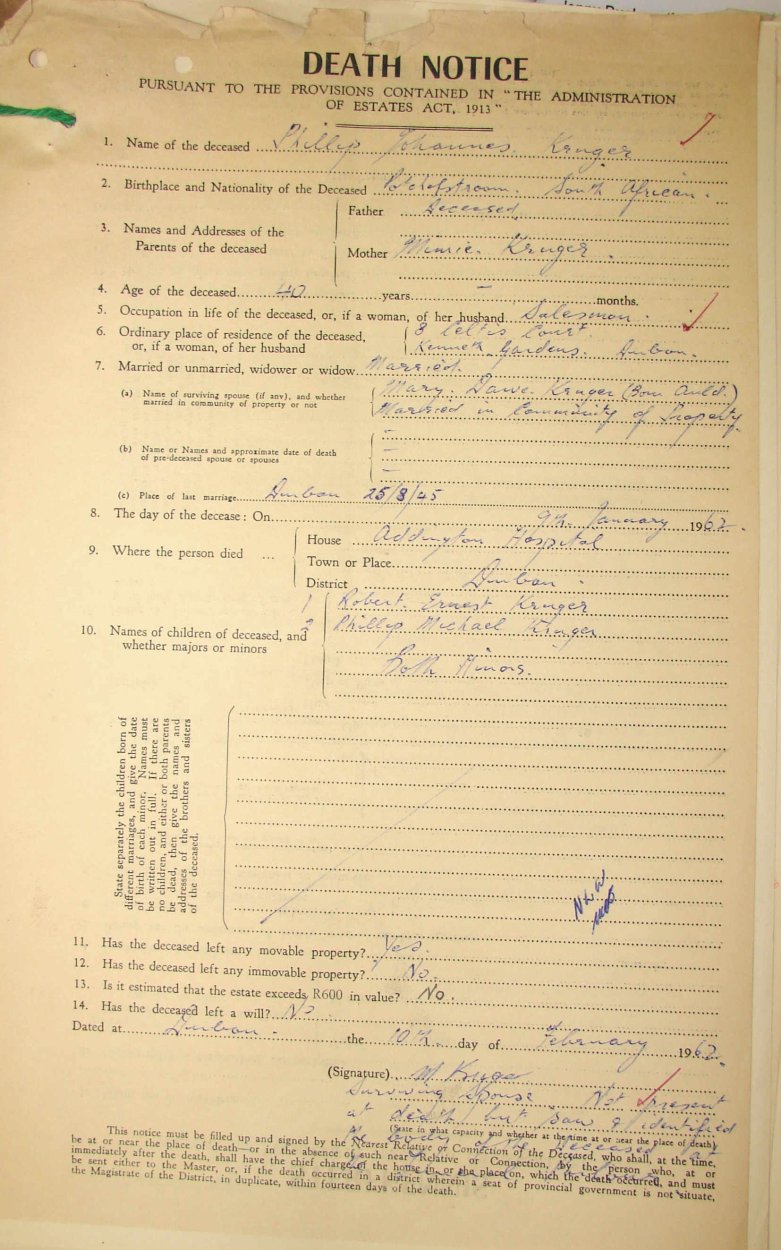 DEATH NOTICE
PURSUANT TO THE PROVISIONS CONTAINED IN "THE ADMINISTRATION
OF ESTATES ACT, 1913"
1. Name of the deceased Phillip Johannes Kruger
2. Birthplace and Nationality of the Deceased Potchefstroom. South African.
3. Names and Addresses of the Parents of the deceased
Father Deceased
Mother Minnie Kruger.
4. Age of the deceased 40 years - months.
5. Occupation in life of the deceased, or, if a woman, of her husband Salesman.
6. Ordinary place of residence of the deceased, or, if a woman, of her husband
8 Celtis Court.
Kenneth Gardens. Durban.
7. Married or unmarried, widower or widow Married.
(a) Name of surviving spouse (if any), and whether married in community of property or not
Mary Dawe Kruger (Born Auld.)
Married in Community of Property
(b) Name or Names and approximate date of death of pre-deceased spouse or spouses
-
-
-
(c) Place of last marriage Durban 25/8/45
8. The day of the decease: On 9th January 1962.
9. Where the person died ...
House Addington Hospital
Town or Place
District Durban.
10. Names of children of deceased, and whether majors or minors
1 Robert Ernest Kruger
2 Phillip Michael Kruger
Both Minors.
State separately the children born of
different marriages, and give the date
of birth of each minor. Names must
be written out in full. If there are
no children, and either or both parents
be dead, then give the names and
addresses of the brothers and sisters
of the deceased.
11. Has the deceased left any movable property? Yes.
12. Has the deceased left any immovable property? No.
13. Is it estimated that the estate exceeds R600 in value? No.
14. Has the deceased left a will? No.
Dated at Durban. the 10th day of February 1962.
(Signature) M Kruger
Surviving Spouse Not present
at death but saw & identified
(State in what capacity and whether at the time at or near the place of death)
the body of the deceased at
This notice must be filled up and signed by the Nearest Relative or Connection of the Deceased, who shall, at the time,
be at or near the place of death—or in the absence of such near Relative or Connection, by the person who, at or
immediately after the death, shall have the chief charge of the house in, or the place on, which the death occurred, and must
be sent either to the Master, or, if the death occurred in a district wherein a seat of provincial government is not situate,
the Magistrate of the District, in duplicate, within fourteen days of the death.